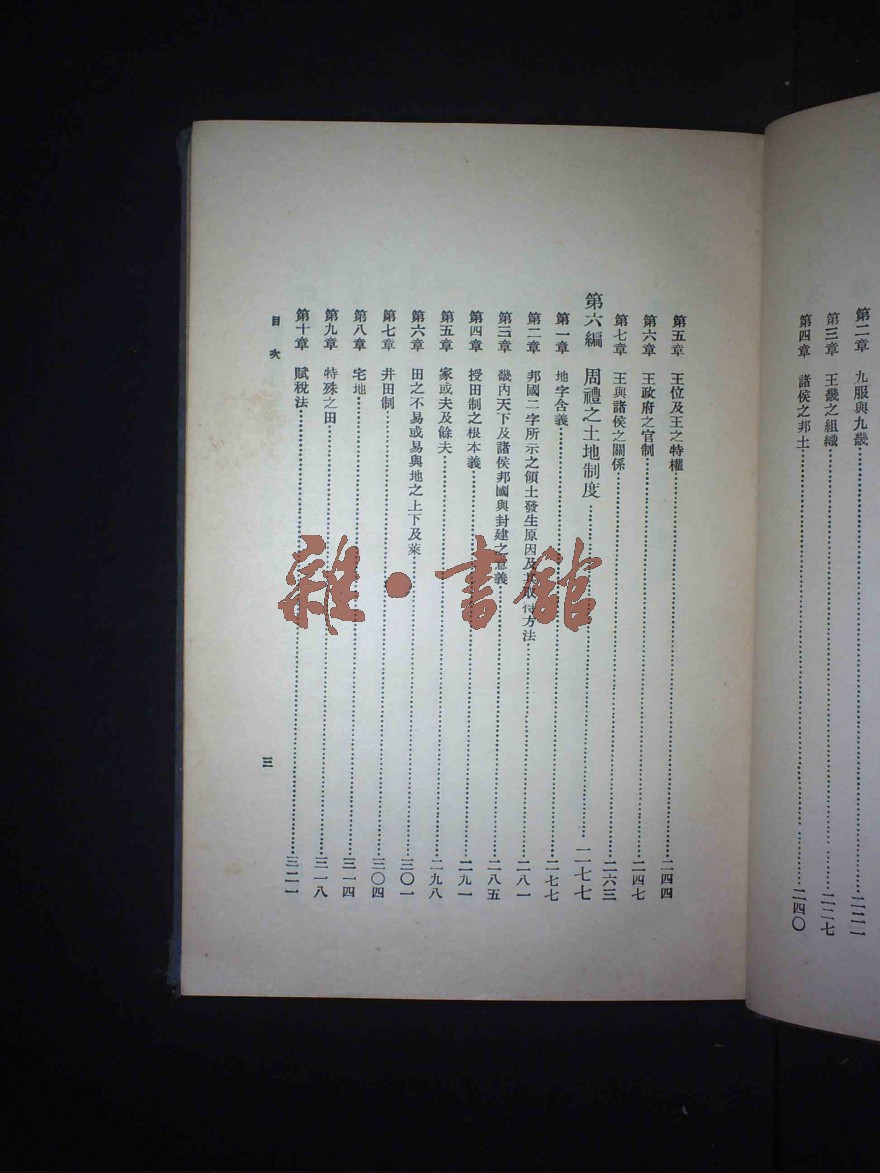 第二章　九服與九畿……二二一
第三章　王畿之組織……二二七
第四章　諸侯之邦土……二四〇
第五章　王位及王之特權……二四四
第六章　王政府之官制……二四七
第七章　王與諸侯之關係……二六三
第六編　周禮之土地制度……二七七
第一章　地字含義……二七七
第二章　邦國二字所示之領土發生原因及其取得方法……二八一
第三章　畿內天下及諸侯邦國與封建之意義……二八五
第四章　授田制之根本義……二九一
第五章　家或夫及餘夫……二九八
第六章　田之不易或易與地之上下及萊……三〇一
第七章　井田制……三〇四
第八章　宅地……三一四
第九章　特殊之田……三一八
第十章　賦稅法……三二一
目次
三
雜·書館